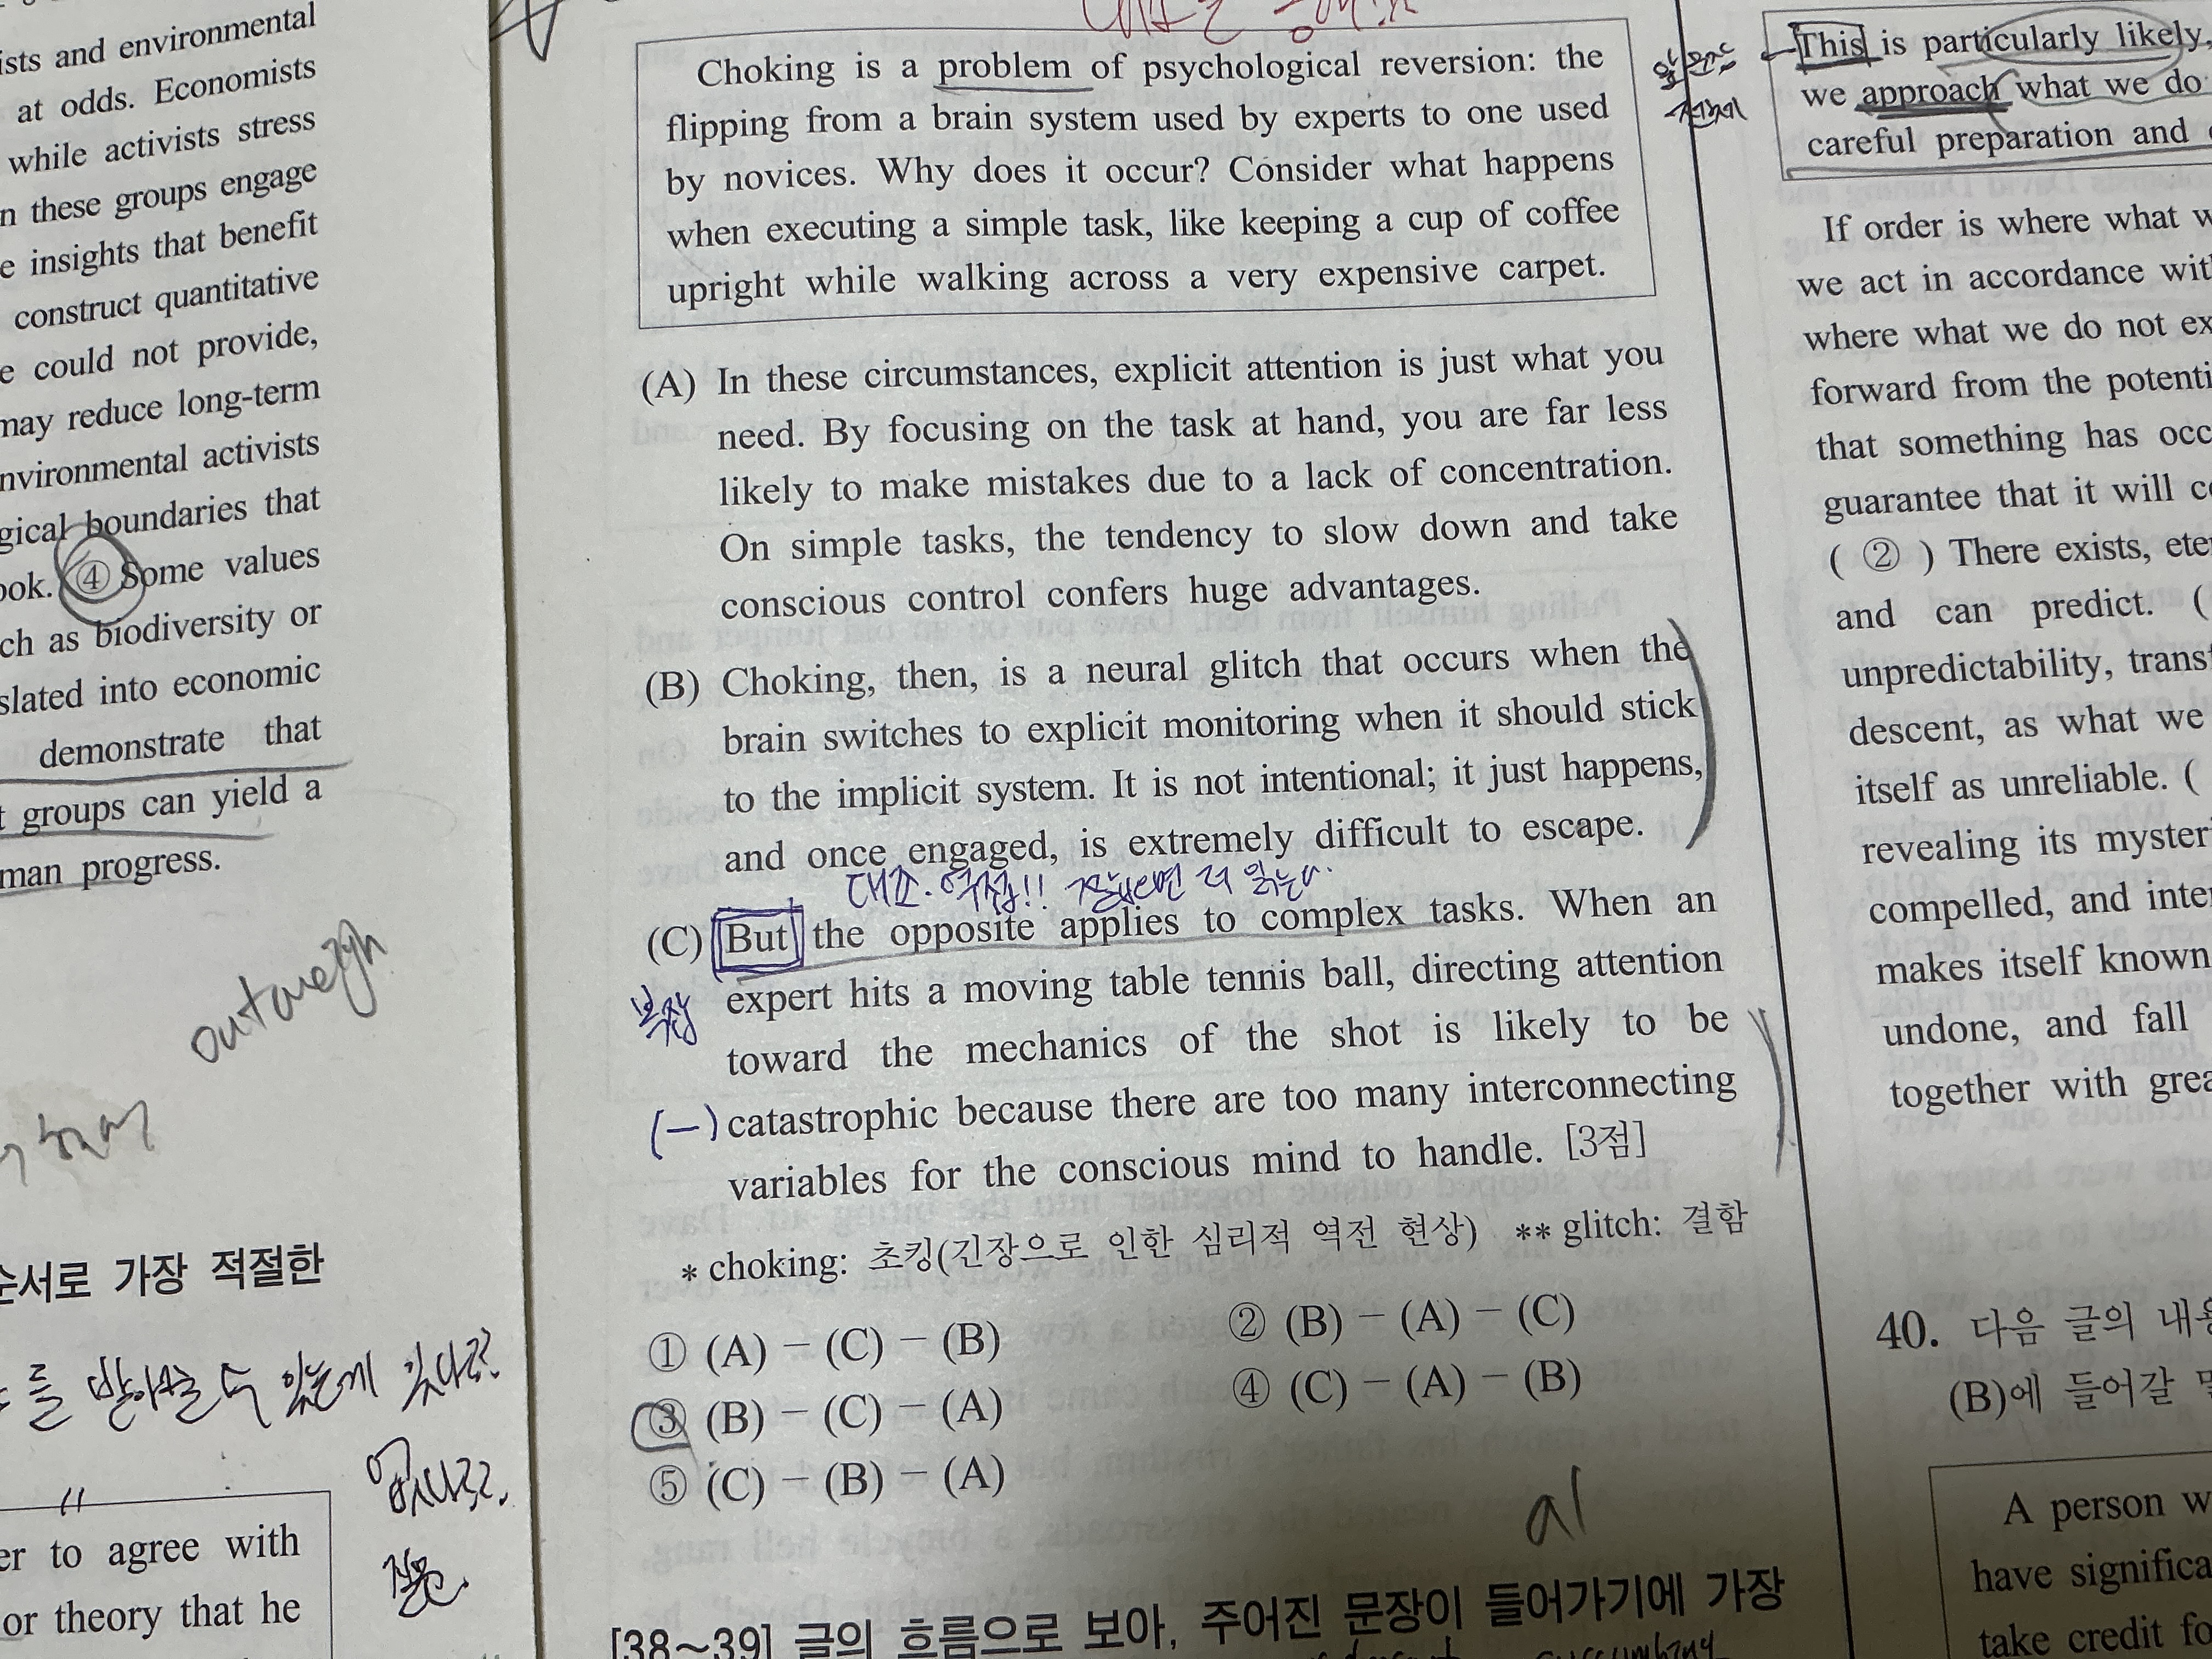 ists and environmental
at odds. Economists
while activists stress
n these groups engage
e insights that benefit
construct quantitative
e could not provide,
may reduce long-term
nvironmental activists
gical boundaries that
ook. ④ Some values
ch as biodiversity or
slated into economic
demonstrate that
t groups can yield a
man progress.
outoweigh
순서로 가장 적절한
er to agree with
or theory that he
Choking is a problem of psychological reversion: the
flipping from a brain system used by experts to one used
by novices. Why does it occur? Consider what happens
when executing a simple task, like keeping a cup of coffee
upright while walking across a very expensive carpet.
(A) In these circumstances, explicit attention is just what you
need. By focusing on the task at hand, you are far less
likely to make mistakes due to a lack of concentration.
On simple tasks, the tendency to slow down and take
conscious control confers huge advantages.
(B) Choking, then, is a neural glitch that occurs when the
brain switches to explicit monitoring when it should stick
to the implicit system. It is not intentional; it just happens,
and once engaged, is extremely difficult to escape.
(C) But the opposite applies to complex tasks. When an
복잡
expert hits a moving table tennis ball, directing attention
toward the mechanics of the shot is likely to be
(−) catastrophic because there are too many interconnecting
variables for the conscious mind to handle. [3점]
* choking: 초킹(긴장으로 인한 심리적 역전 현상) ** glitch: 결함
① (A) − (C) − (B) ② (B) − (A) − (C)
③ (B) − (C) − (A) ④ (C) − (A) − (B)
⑤ (C) − (B) − (A)
al
[38~39] 글의 흐름으로 보아, 주어진 문장이 들어가기에 가장
This is particularly likely,
we approach what we do
careful preparation and
If order is where what w
we act in accordance wit
where what we do not ex
forward from the potenti
that something has occ
guarantee that it will c
( ② ) There exists, ete
and can predict. (
unpredictability, transf
descent, as what we
itself as unreliable. (
revealing its myster
compelled, and inte
makes itself known
undone, and fall
together with grea
40. 다음 글의 내용
(B)에 들어갈 말
A person w
have significa
take credit fo